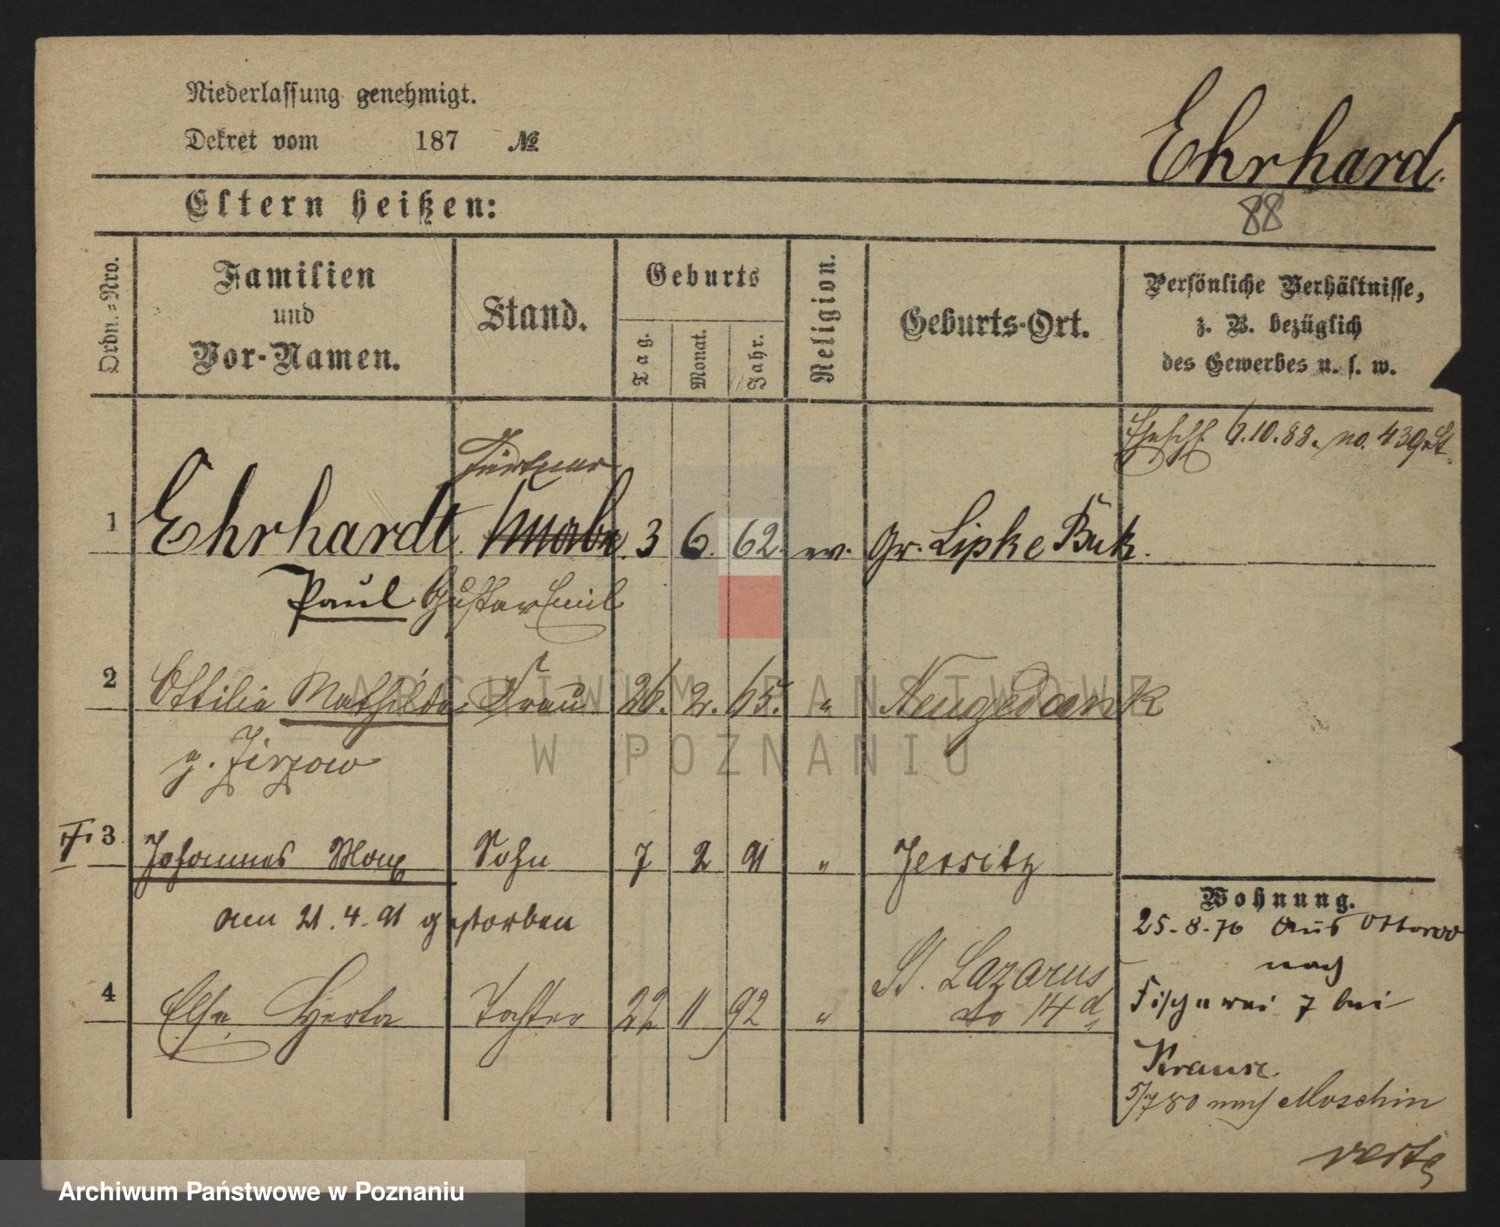 Niederlassung genehmigt.
Dekret vom 187 №
Ehrhard.
88
Eltern heißen:
Ordn.=Nro.
Familien
und
Vor-Namen.
Stand.
Geburts
Tag.
Monat.
Jahr.
Religion.
Geburts-Ort.
Persönliche Verhältnisse,
z. B. bezüglich
des Gewerbes u. s. w.
6.10.88. no. 439
1 Ehrhardt Knabe 3 6. 62. ev. Gr. Lipke Buk.
Paul Gustav Emil
2 Ottilie Mathilde Frau 26. 2. 65. " Neugedank
g.
3 Johannes Max Sohn 7 2 91 " Jersitz
am 21.4.91 gestorben
4 Else Herta Tochter 22 11 92 " St. Lazarus
no 14d
Wohnung.
25-8-76 Aus Ottorowo
nach
Fischerei 7 bei
Krause
5/7 80 nach Moschin
verte
ARCHIWUM PAŃSTWOWE
W POZNANIU
Archiwum Państwowe w Poznaniu